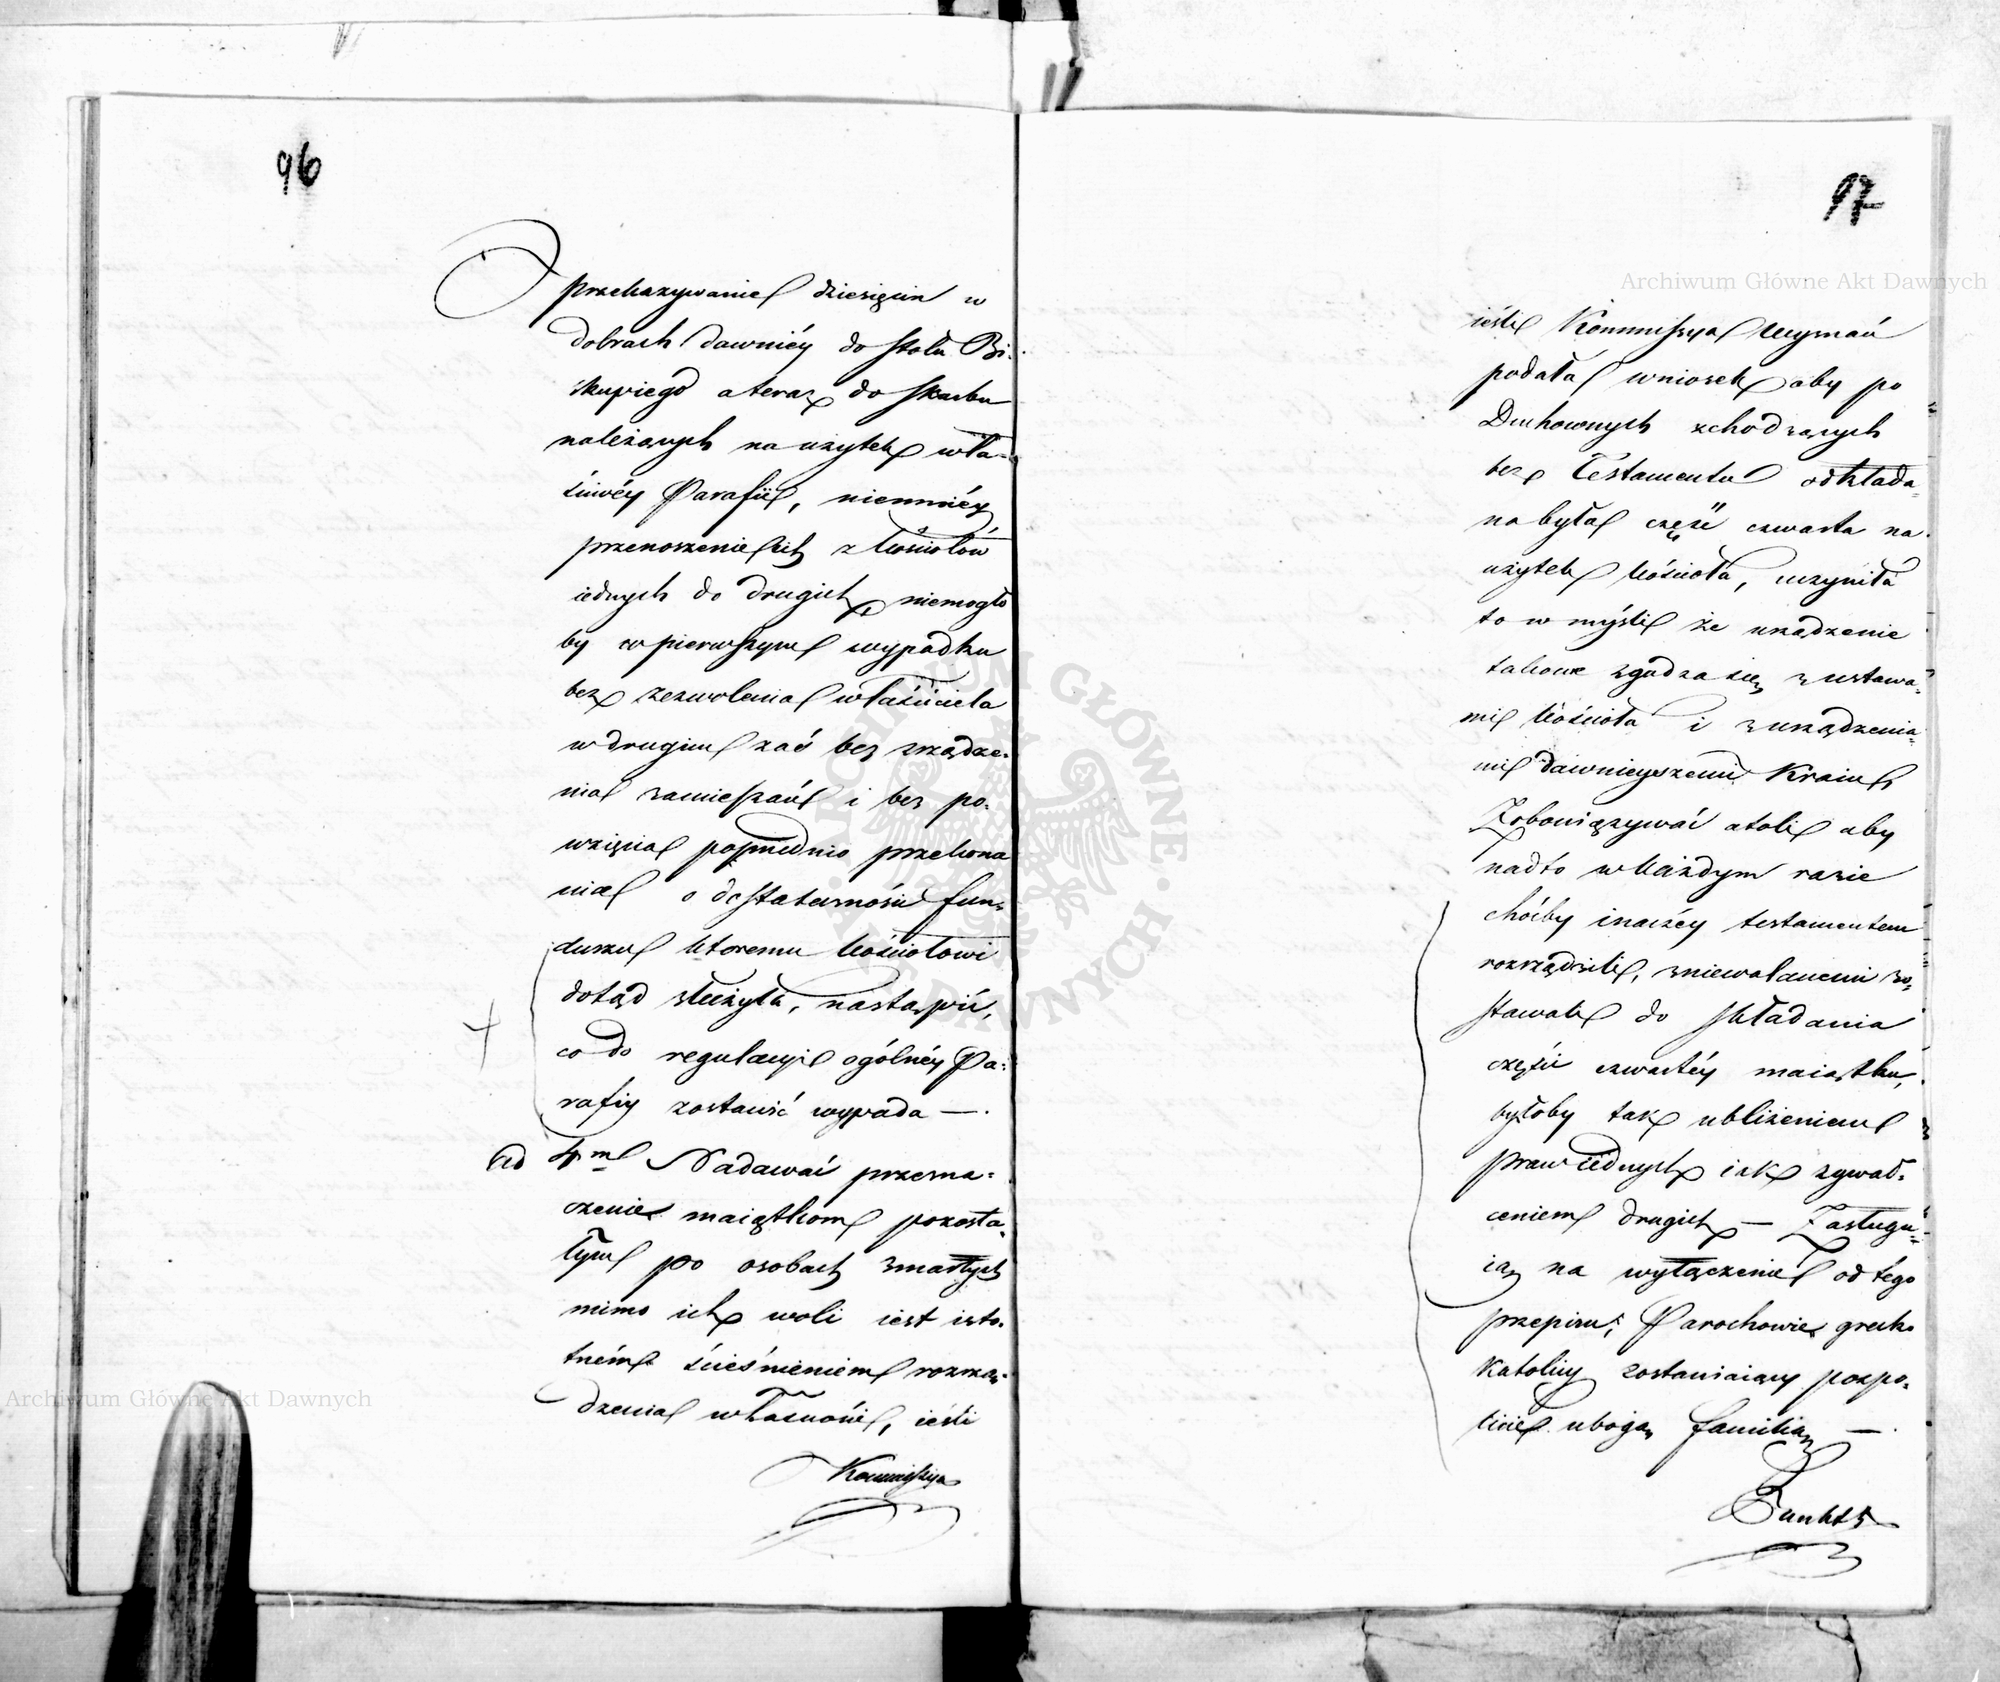 96
przekazywanie dziesięcin w
dobrach dawniéy do stołu Bi-
skupiego a teraz do Skarbu
należących na użytek wła-
ściwéy Parafii, niemniéy
przenoszenie ich z kościołów
iednych do drugich, niemogło
by w pierwszym wypadku
bez zezwolenia właściciela
w drugim zaś bez zrządze-
nia zamieszań i bez po-
wzięcia poprzednio przekona
nia o dostateczności fun-
duszu któremu kościołowi
dotąd służyła, nastąpić,
co do regulacyi ogólnéy Pa-
rafiy zostawić wypada —.
Ad 4m Nadawać przezna-
czenie maiątkom pozosta-
łym po osobach zmarłych
mimo ich woli iest isto-
tném ścieśnieniem rozrzą-
dzenia własności, ieśli
Kommissya
97
ieśli Kommissya Wyznań
podała wniosek aby po
Duchownych schodzących
bez Testamentu odkłada-
na była część czwarta na
użytek kościoła, uczyniła
to w myśli że urządzenie
takowe zgadza się z ustawa-
mi kościoła i z urządzenia-
mi dawnieyszemi Kraiu,
Zobowiązywać atoli aby
nadto w każdym razie
choćby inaczéy testamentem
rozrządzili, zniewalanemi zo-
stawali do składania
części czwartéy maiątku,
byłoby tak ubliżeniem
praw iednych iak zgwał-
ceniem drugich — Zasługu-
ią na wyłączenie od tégo
przepisu; Parochowie grecko
Katoliccy zostawiaiący pospo-
licie ubogą familią —.
Punkt 5
Archiwum Główne Akt Dawnych
Archiwum Główne Akt Dawnych
ARCHIWUM GŁÓWNE AKT DAWNYCH